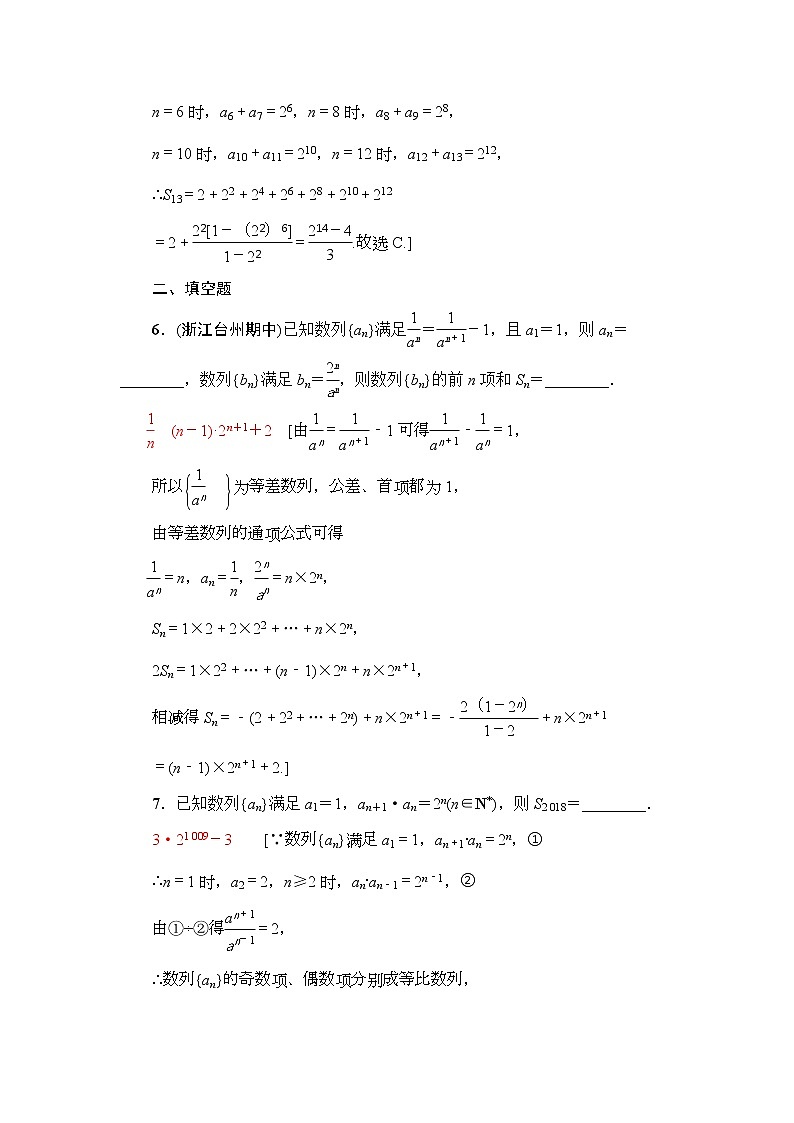 n=6 时，a₆+a₇=2⁶，n=8 时，a₈+a₉=2⁸，
n=10 时，a₁₀+a₁₁=2¹⁰，n=12 时，a₁₂+a₁₃=2¹²，
∴S₁₃=2+2²+2⁴+2⁶+2⁸+2¹⁰+2¹²
=2+\frac{2²[1-（2²）⁶]}{1-2²}=\frac{2¹⁴-4}{3}.故选 C.]
二、填空题
6．(浙江台州期中)已知数列{aₙ}满足\frac{1}{aⁿ}=\frac{1}{aⁿ⁺¹}-1，且 a₁=1，则 aₙ=
________，数列{bₙ}满足 bₙ=\frac{2ⁿ}{aⁿ}，则数列{bₙ}的前 n 项和 Sₙ=________．
\frac{1}{n} (n-1)·2ⁿ⁺¹+2 [由\frac{1}{aⁿ}=\frac{1}{aⁿ⁺¹}-1 可得\frac{1}{aⁿ⁺¹}-\frac{1}{aⁿ}=1，
所以{\frac{1}{aⁿ}}为等差数列，公差、首项都为 1，
由等差数列的通项公式可得
\frac{1}{aⁿ}=n，aₙ=\frac{1}{n}，\frac{2ⁿ}{aⁿ}=n×2ⁿ，
Sₙ=1×2+2×2²+…+n×2ⁿ，
2Sₙ=1×2²+…+(n-1)×2ⁿ+n×2ⁿ⁺¹，
相减得 Sₙ=-(2+2²+…+2ⁿ)+n×2ⁿ⁺¹=-\frac{2（1-2ⁿ）}{1-2}+n×2ⁿ⁺¹
=(n-1)×2ⁿ⁺¹+2.]
7．已知数列{aₙ}满足 a₁=1，aₙ₊₁·aₙ=2ⁿ(n∈N*)，则 S₂ ₀₁₈=________．
3·2¹ ⁰⁰⁹-3 [∵数列{aₙ}满足 a₁=1，aₙ₊₁·aₙ=2ⁿ，①
∴n=1 时，a₂=2，n≥2 时，aₙ·aₙ₋₁=2ⁿ⁻¹，②
由①÷②得\frac{aⁿ⁺¹}{aⁿ⁻¹}=2，
∴数列{aₙ}的奇数项、偶数项分别成等比数列，